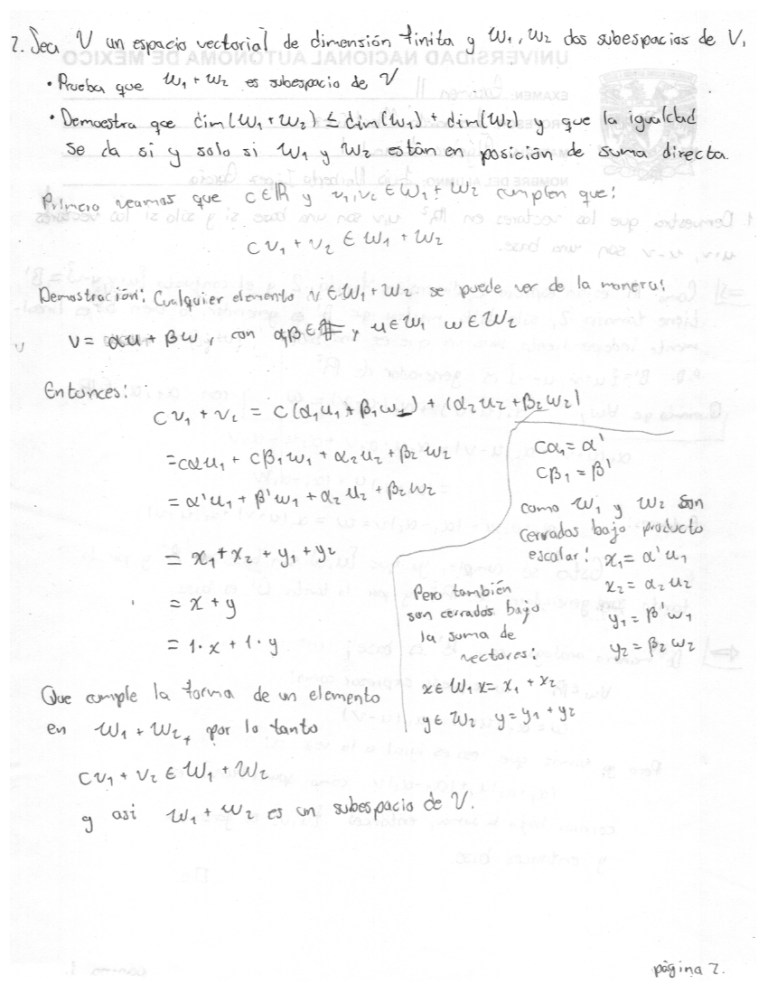 2. Sea V un espacio vectorial de dimensión finita y W₁, W₂ dos subespacios de V.
• Prueba que W₁ + W₂ es subespacio de V
• Demuestra que dim(W₁ + W₂) ≤ dim(W₁) + dim(W₂) y que la igualdad
se da si y solo si W₁ y W₂ están en posición de suma directa.
Primero veamos que c∈ℝ y v₁,v₂ ∈ W₁ + W₂ cumplen que:
cv₁ + v₂ ∈ W₁ + W₂
Demostración: Cualquier elemento v∈W₁+W₂ se puede ver de la manera:
v = αu + βw, con α,β∈F y u∈W₁ w∈W₂
Entonces:
cv₁ + v₂ = c(α₁u₁ + β₁w₁) + (α₂u₂ + β₂w₂)
= cαu₁ + cβ₁w₁ + α₂u₂ + β₂w₂
= α'u₁ + β'w₁ + α₂u₂ + β₂w₂
= x₁ + x₂ + y₁ + y₂
= x + y
= 1·x + 1·y
cα₁ = α'
cβ₁ = β'
como W₁ y W₂ son
cerrados bajo producto
escalar: x₁ = α'u₁
x₂ = α₂u₂
y₁ = β'w₁
y₂ = β₂w₂
Pero también
son cerrados bajo
la suma de
vectores:
x∈W₁ x = x₁ + x₂
y∈W₂ y = y₁ + y₂
Que cumple la forma de un elemento
en W₁ + W₂, por lo tanto
cv₁ + v₂ ∈ W₁ + W₂
y asi W₁ + W₂ es un subespacio de V.
página 2.